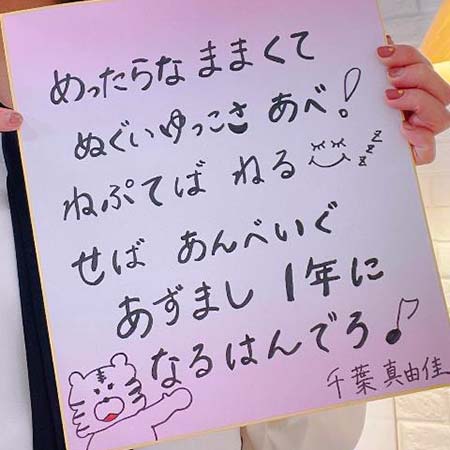 めったらな ままくて
ぬぐいゆっこさ あべ!
ねぷてば ねる zzz
せば あんべいぐ
あずまし 1年に
なるはんでろ♪
千葉 真由佳